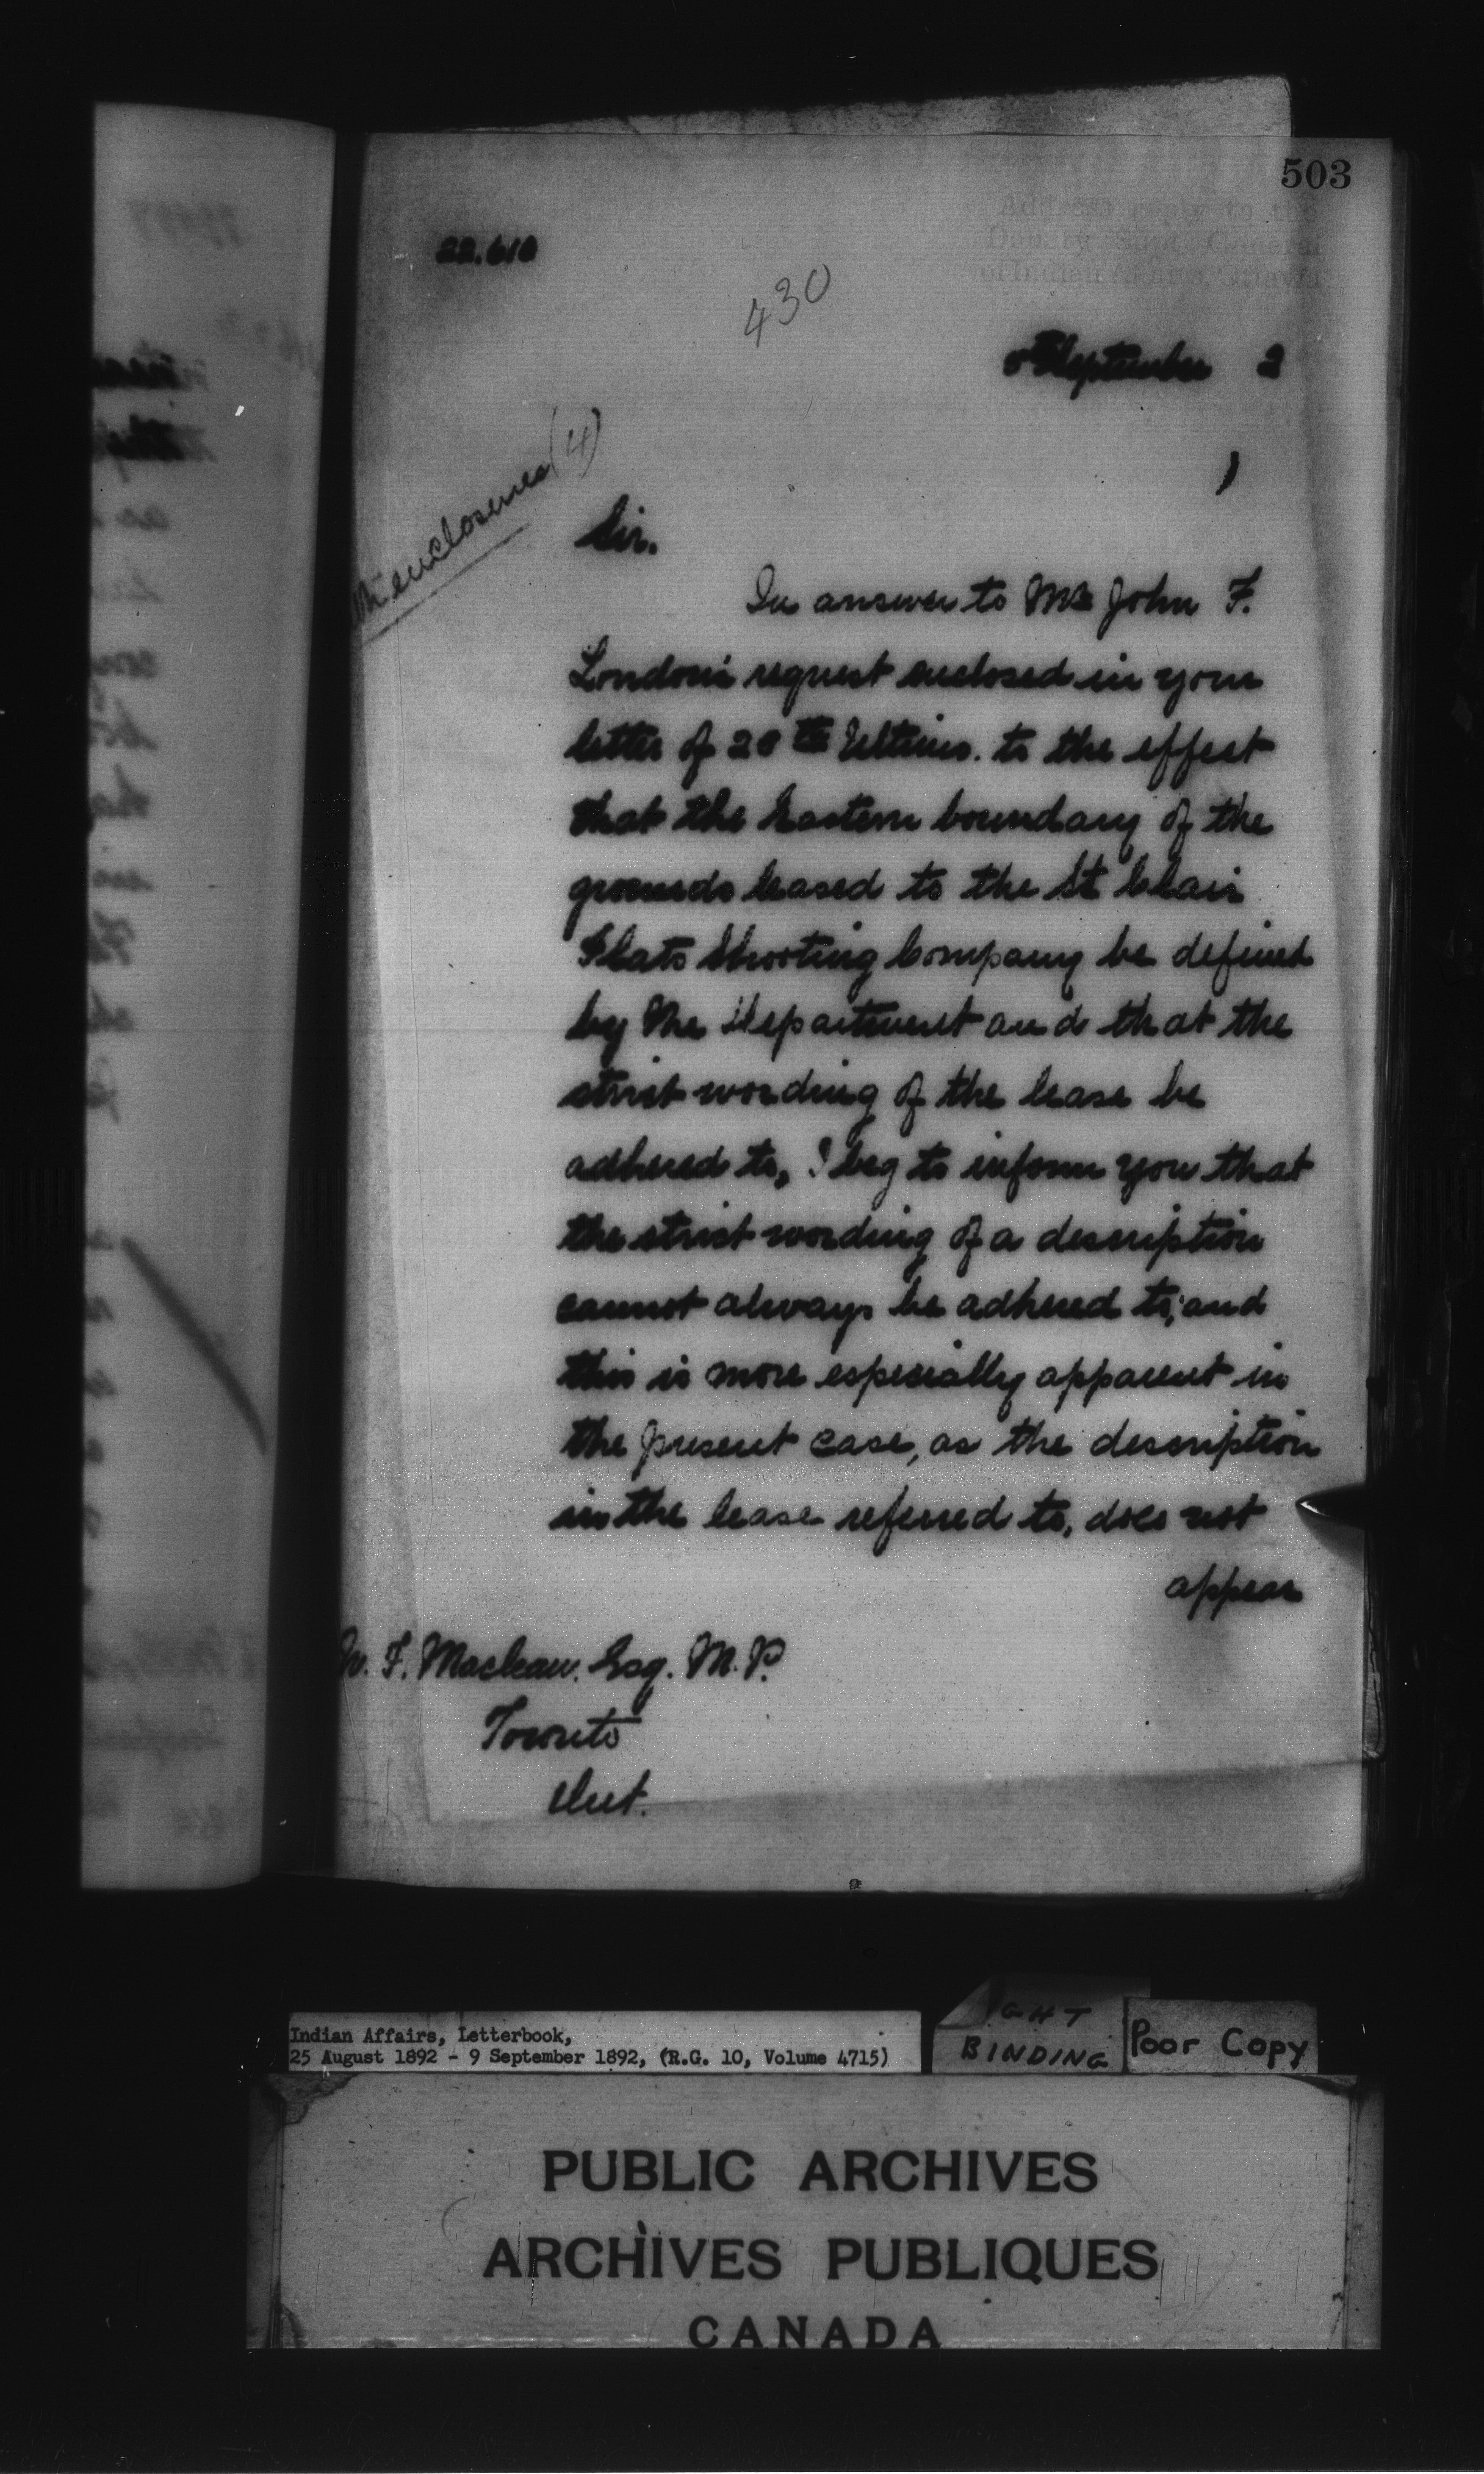 503
Address reply to the
Deputy Supt. General
of Indian Affairs, Ottawa
22.610
430
September 2
enclosures (4)
Sir.
In answer to Mr John F.
London's request enclosed in your
letter of 20th Ultimo. to the effect
that the Eastern boundary of the
grounds leased to the St Clair
Flats Shooting Company be defined
by the Department and that the
strict wording of the lease be
adhered to, I beg to inform you that
the strict wording of a description
cannot always be adhered to; and
this is more especially apparent in
the present case, as the description
in the lease referred to, does not
appear
W. F. Maclean. Esq. M.P.
Toronto
Ont.
Indian Affairs, Letterbook,
25 August 1892 - 9 September 1892, (R.G. 10, Volume 4715)
GHT
BINDING
Poor Copy
PUBLIC ARCHIVES
ARCHIVES PUBLIQUES
CANADA